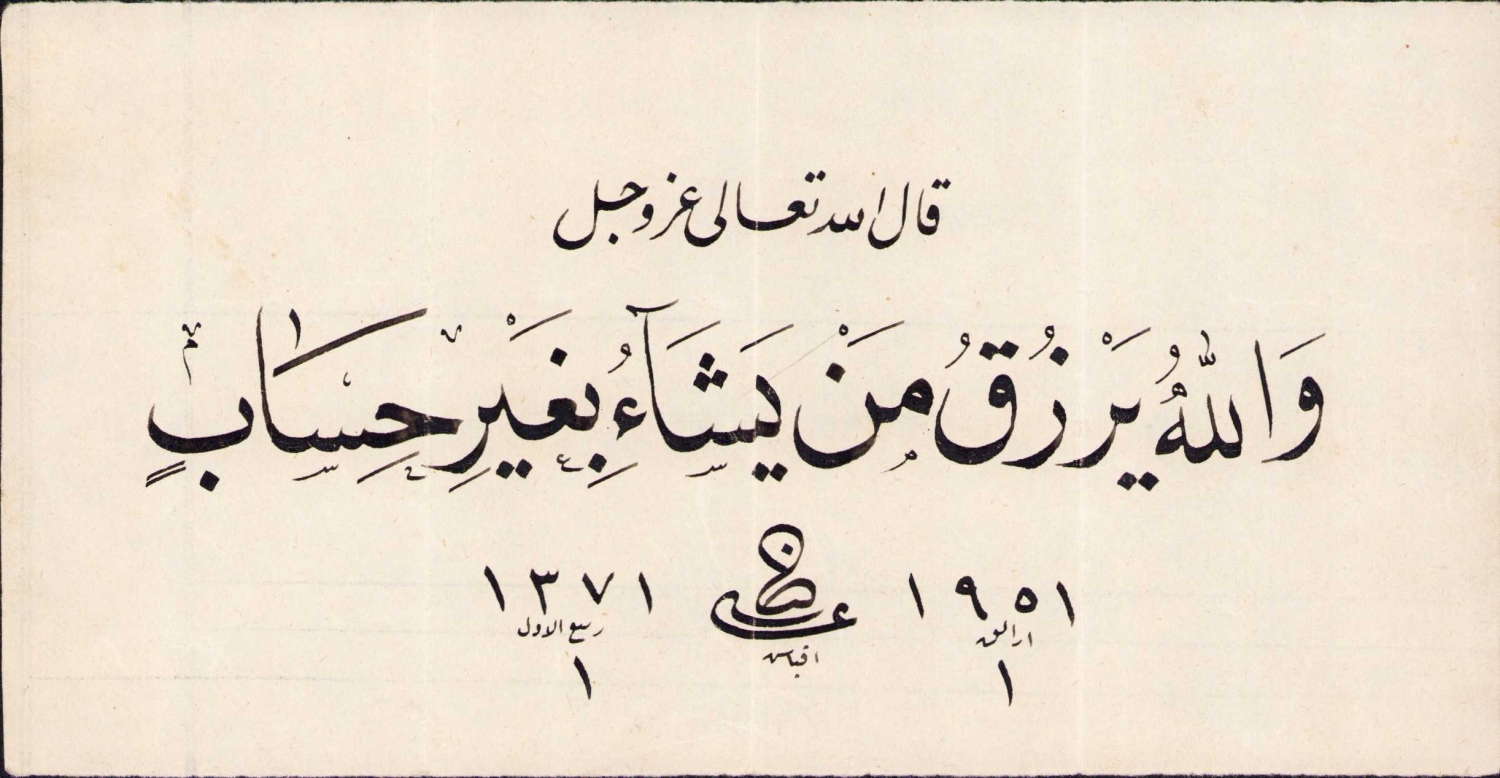 قال الله تعالى عز وجل
وَاللّٰهُ يَرْزُقُ مَنْ يَشَآءُ بِغَيْرِ حِسَابٍ
١٩٥١ ١٣٧١
ارالق ربيع الاول
١ ١